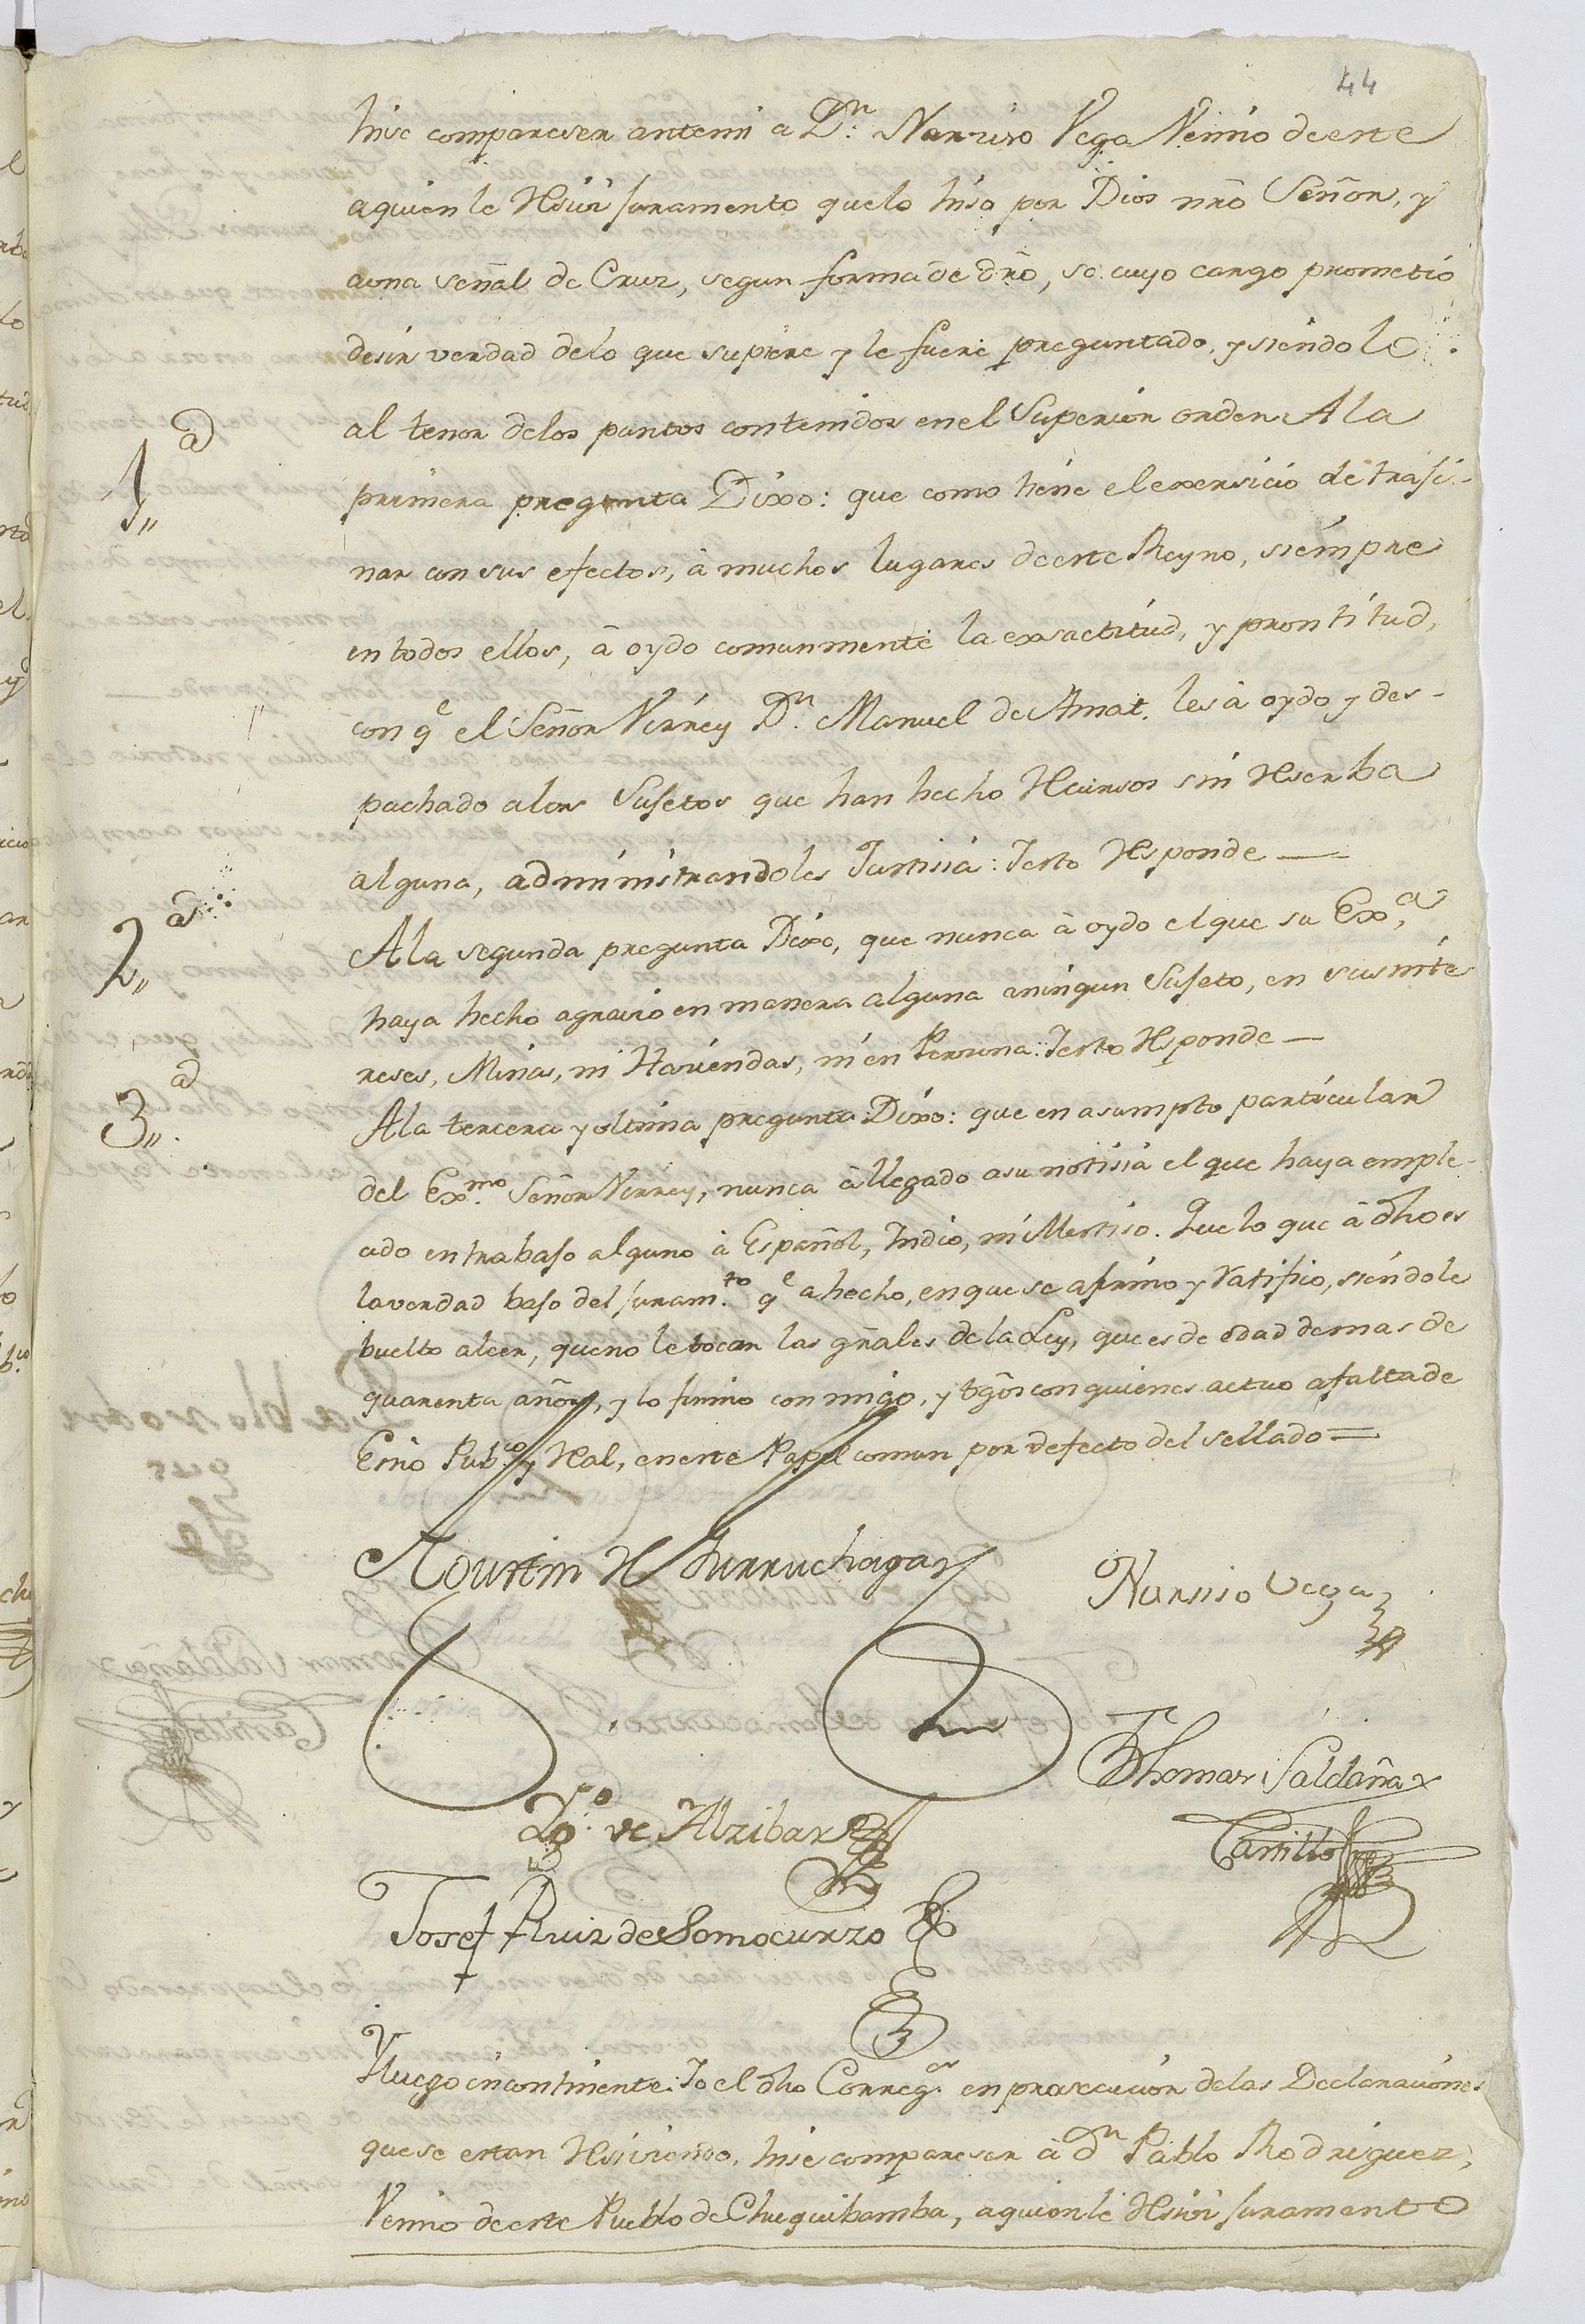 44
hise compareser antemi a Dn. Narziso Vega Vezino de este
aquien le Resivi juramento quelo hiso por Dios nrõ Señor, y
auna señal de Cruz, segun forma de drõ, so cuyo cargo prometio
desir verdad delo que supiere y le fuere preguntado, y siendolo
al tenor delos puntos contenidos enel Superior orden A la
1,,a primera pregunta Dixo: que como tiene el exersicio de trasi-
nar con sus efectos, à muchos lugares de este Reyno, siempre
en todos ellos, à oydo comunmente la exsactitud, y prontitud,
con qe el Señor Virrey Dn. Manuel de Amat. les à oydo y des-
pachado alos Sujetos que han hecho Recursos sin Reserba
alguna, administrandoles Justisia: Y esto Responde —
2,,a A la segunda pregunta Dixo, que nunca à oydo el que su Exa,
haya hecho agravio en manera alguna aningun Sujeto, en sus inte
reses, Minas, ni Haziendas, ni en Persona: Y esto Responde —
3,,a A la tercera y oltima pregunta Dixo: que en asumpto particular
del Exmo. Señor Virrey, nunca à llegado asu notisia el que haya emple-
ado en trabajo alguno à Español, Indio, ni Mestiso. Que lo que à dho es
la verdad bajo del juram.to qe a hecho, en que se afirmo y Ratifico, siendole
buelto aleer, que no le tocan las gñales de la Ley, que es de edad de mas de
quarenta años, y lo firmo con migo, y tgõs con quienes actuo afalta de
Esño Pubco. y Real, en este Papel comun por defecto del sellado =
Agustin de Jurruchaga
Narsiso Vega
Thomas Saldaña
Castillo
Lo. de Alzibar
Josef Ruiz de Somocurzo
Y luego incontinente: Yo el dho Corregor. en prosecucion delas Declaraciones
que se estan Resiviendo, hise compareser à dn Pablo Rodriguez,
Vezino de este Pueblo de Chuquibamba, aquien le Resivi juramento